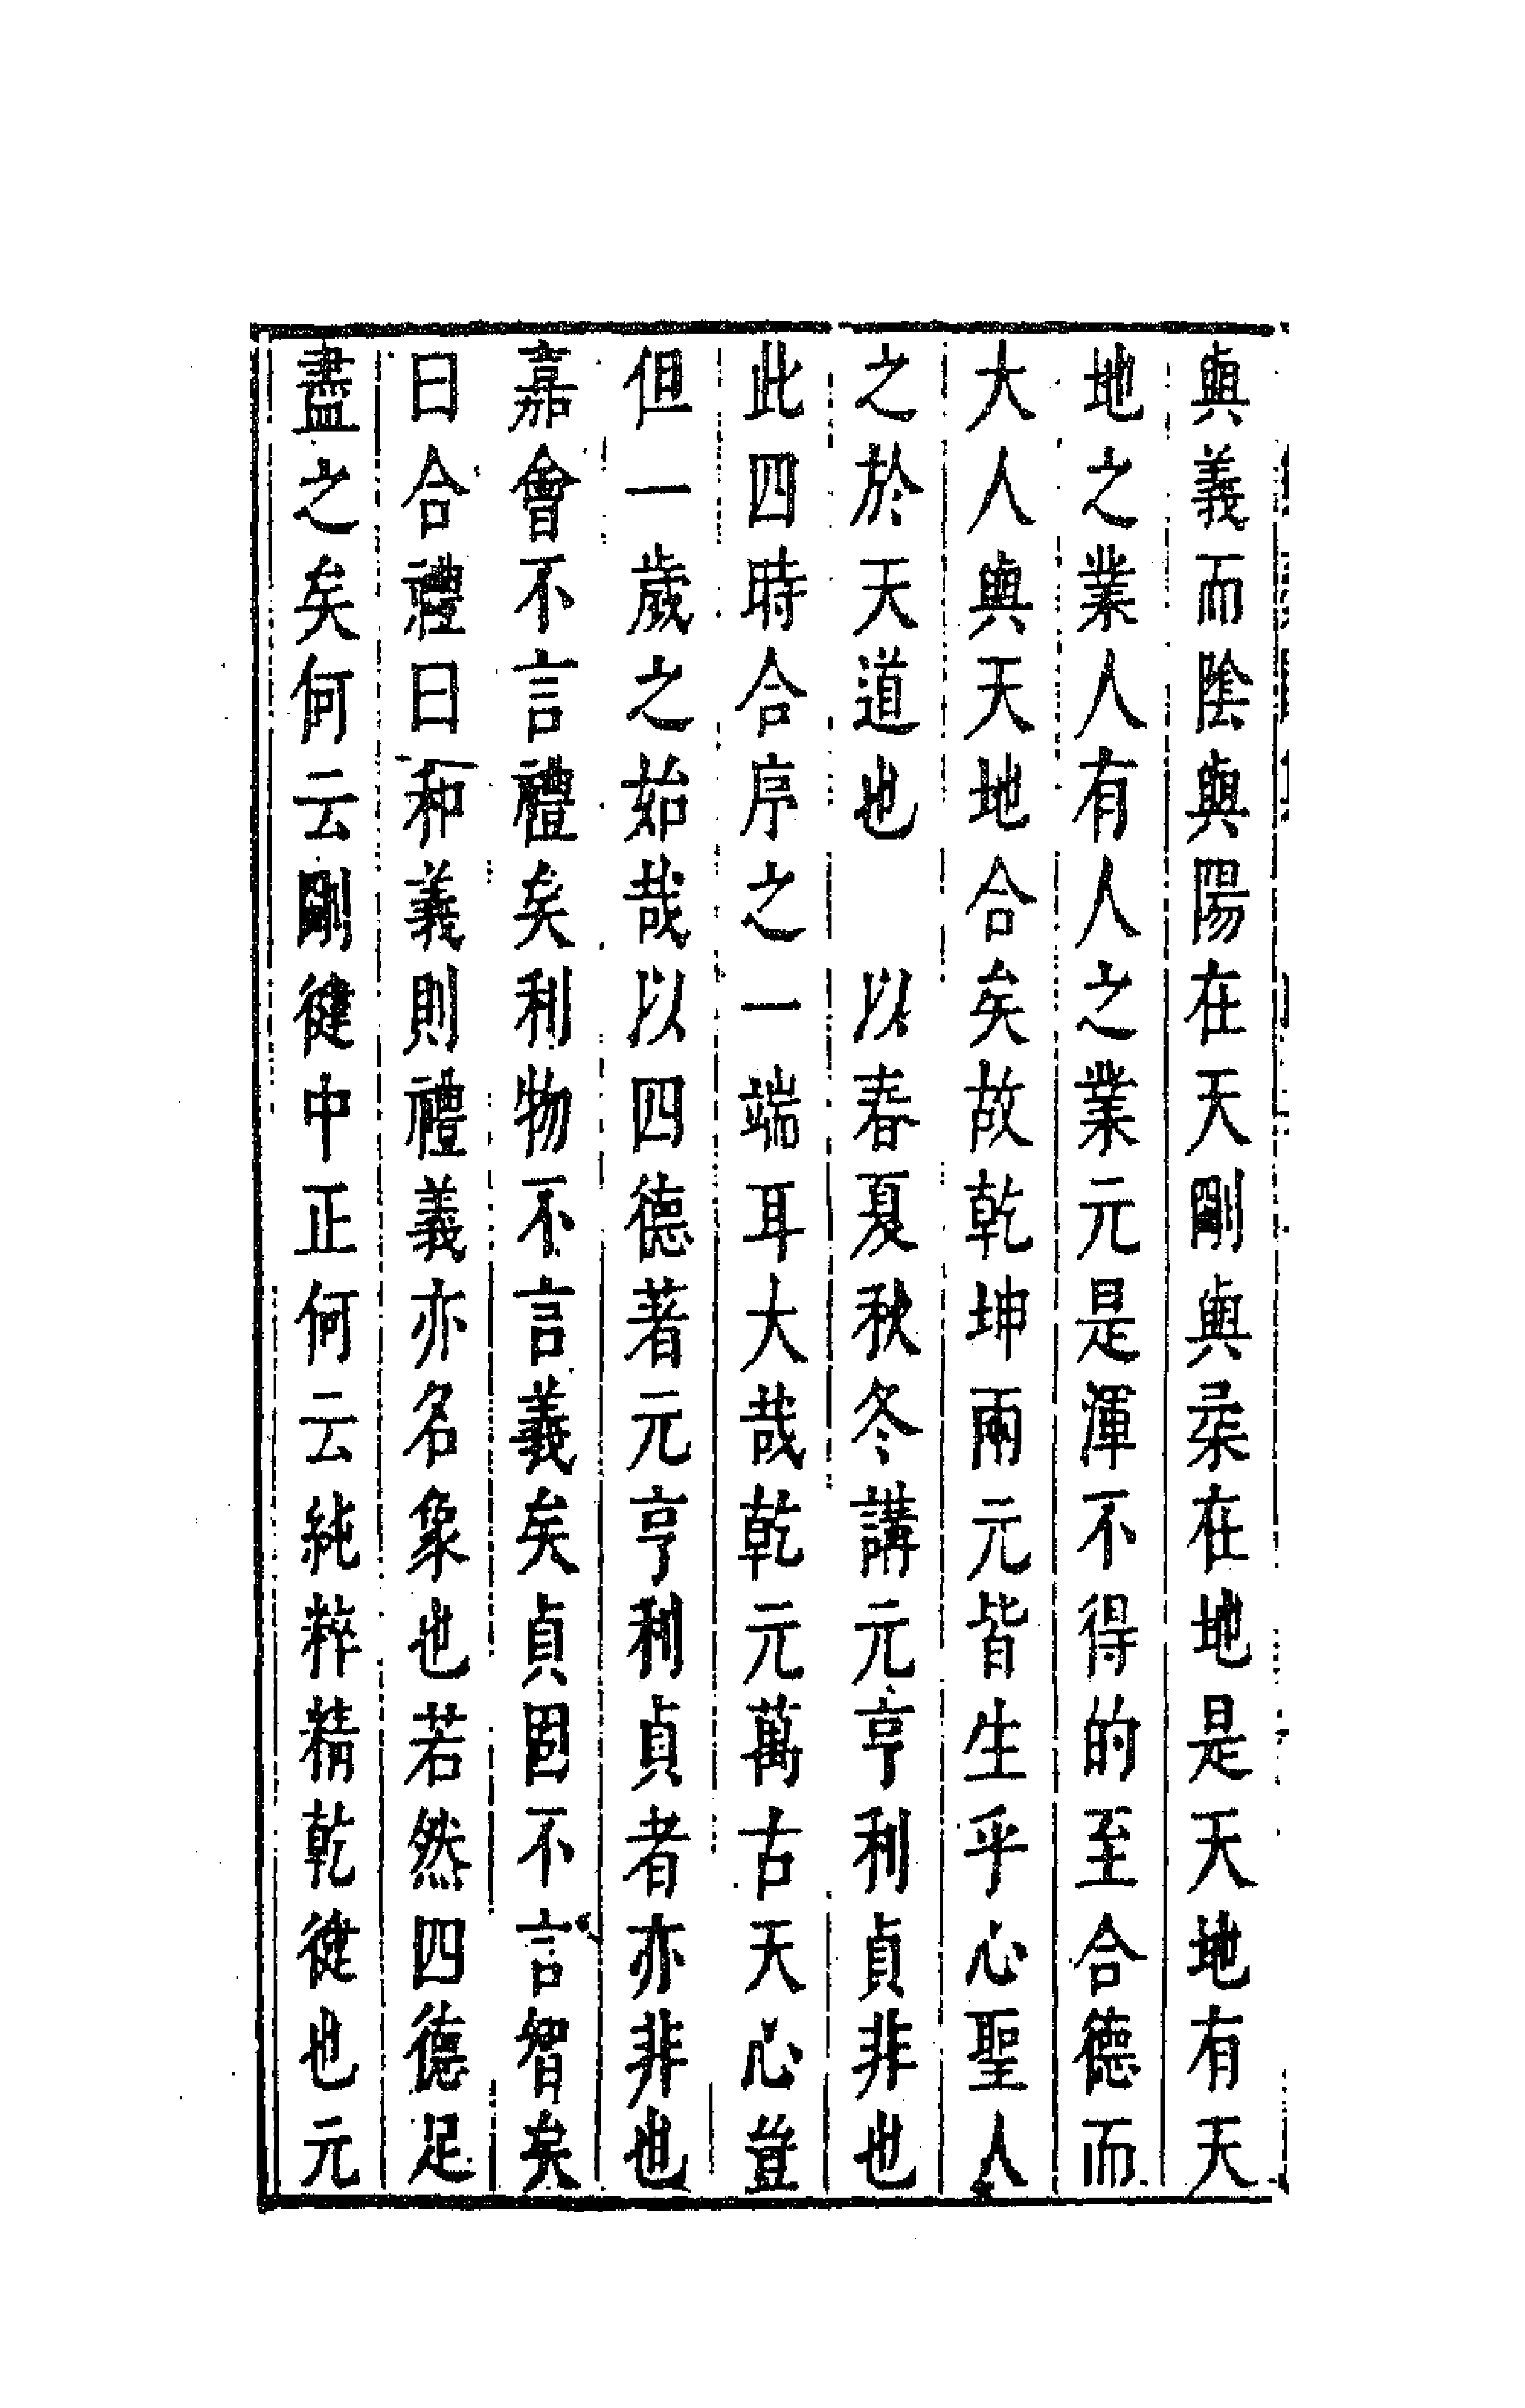 與義而陰與陽在天剛與柔在地是天地有天
地之業人有人之業元是渾不得的至合德而
大人與天地合矣故乾坤兩元皆生乎心聖人
之於天道也　以春夏秋冬講元亨利貞非也
此四時合序之一端耳大哉乾元萬古天心豈
但一歲之始哉以四德著元亨利貞者亦非也
嘉會不言禮矣利物不言義矣貞固不言智矣
曰合禮曰和義則禮義亦名象也若然四德足
盡之矣何云剛健中正何云純粹精乾健也元